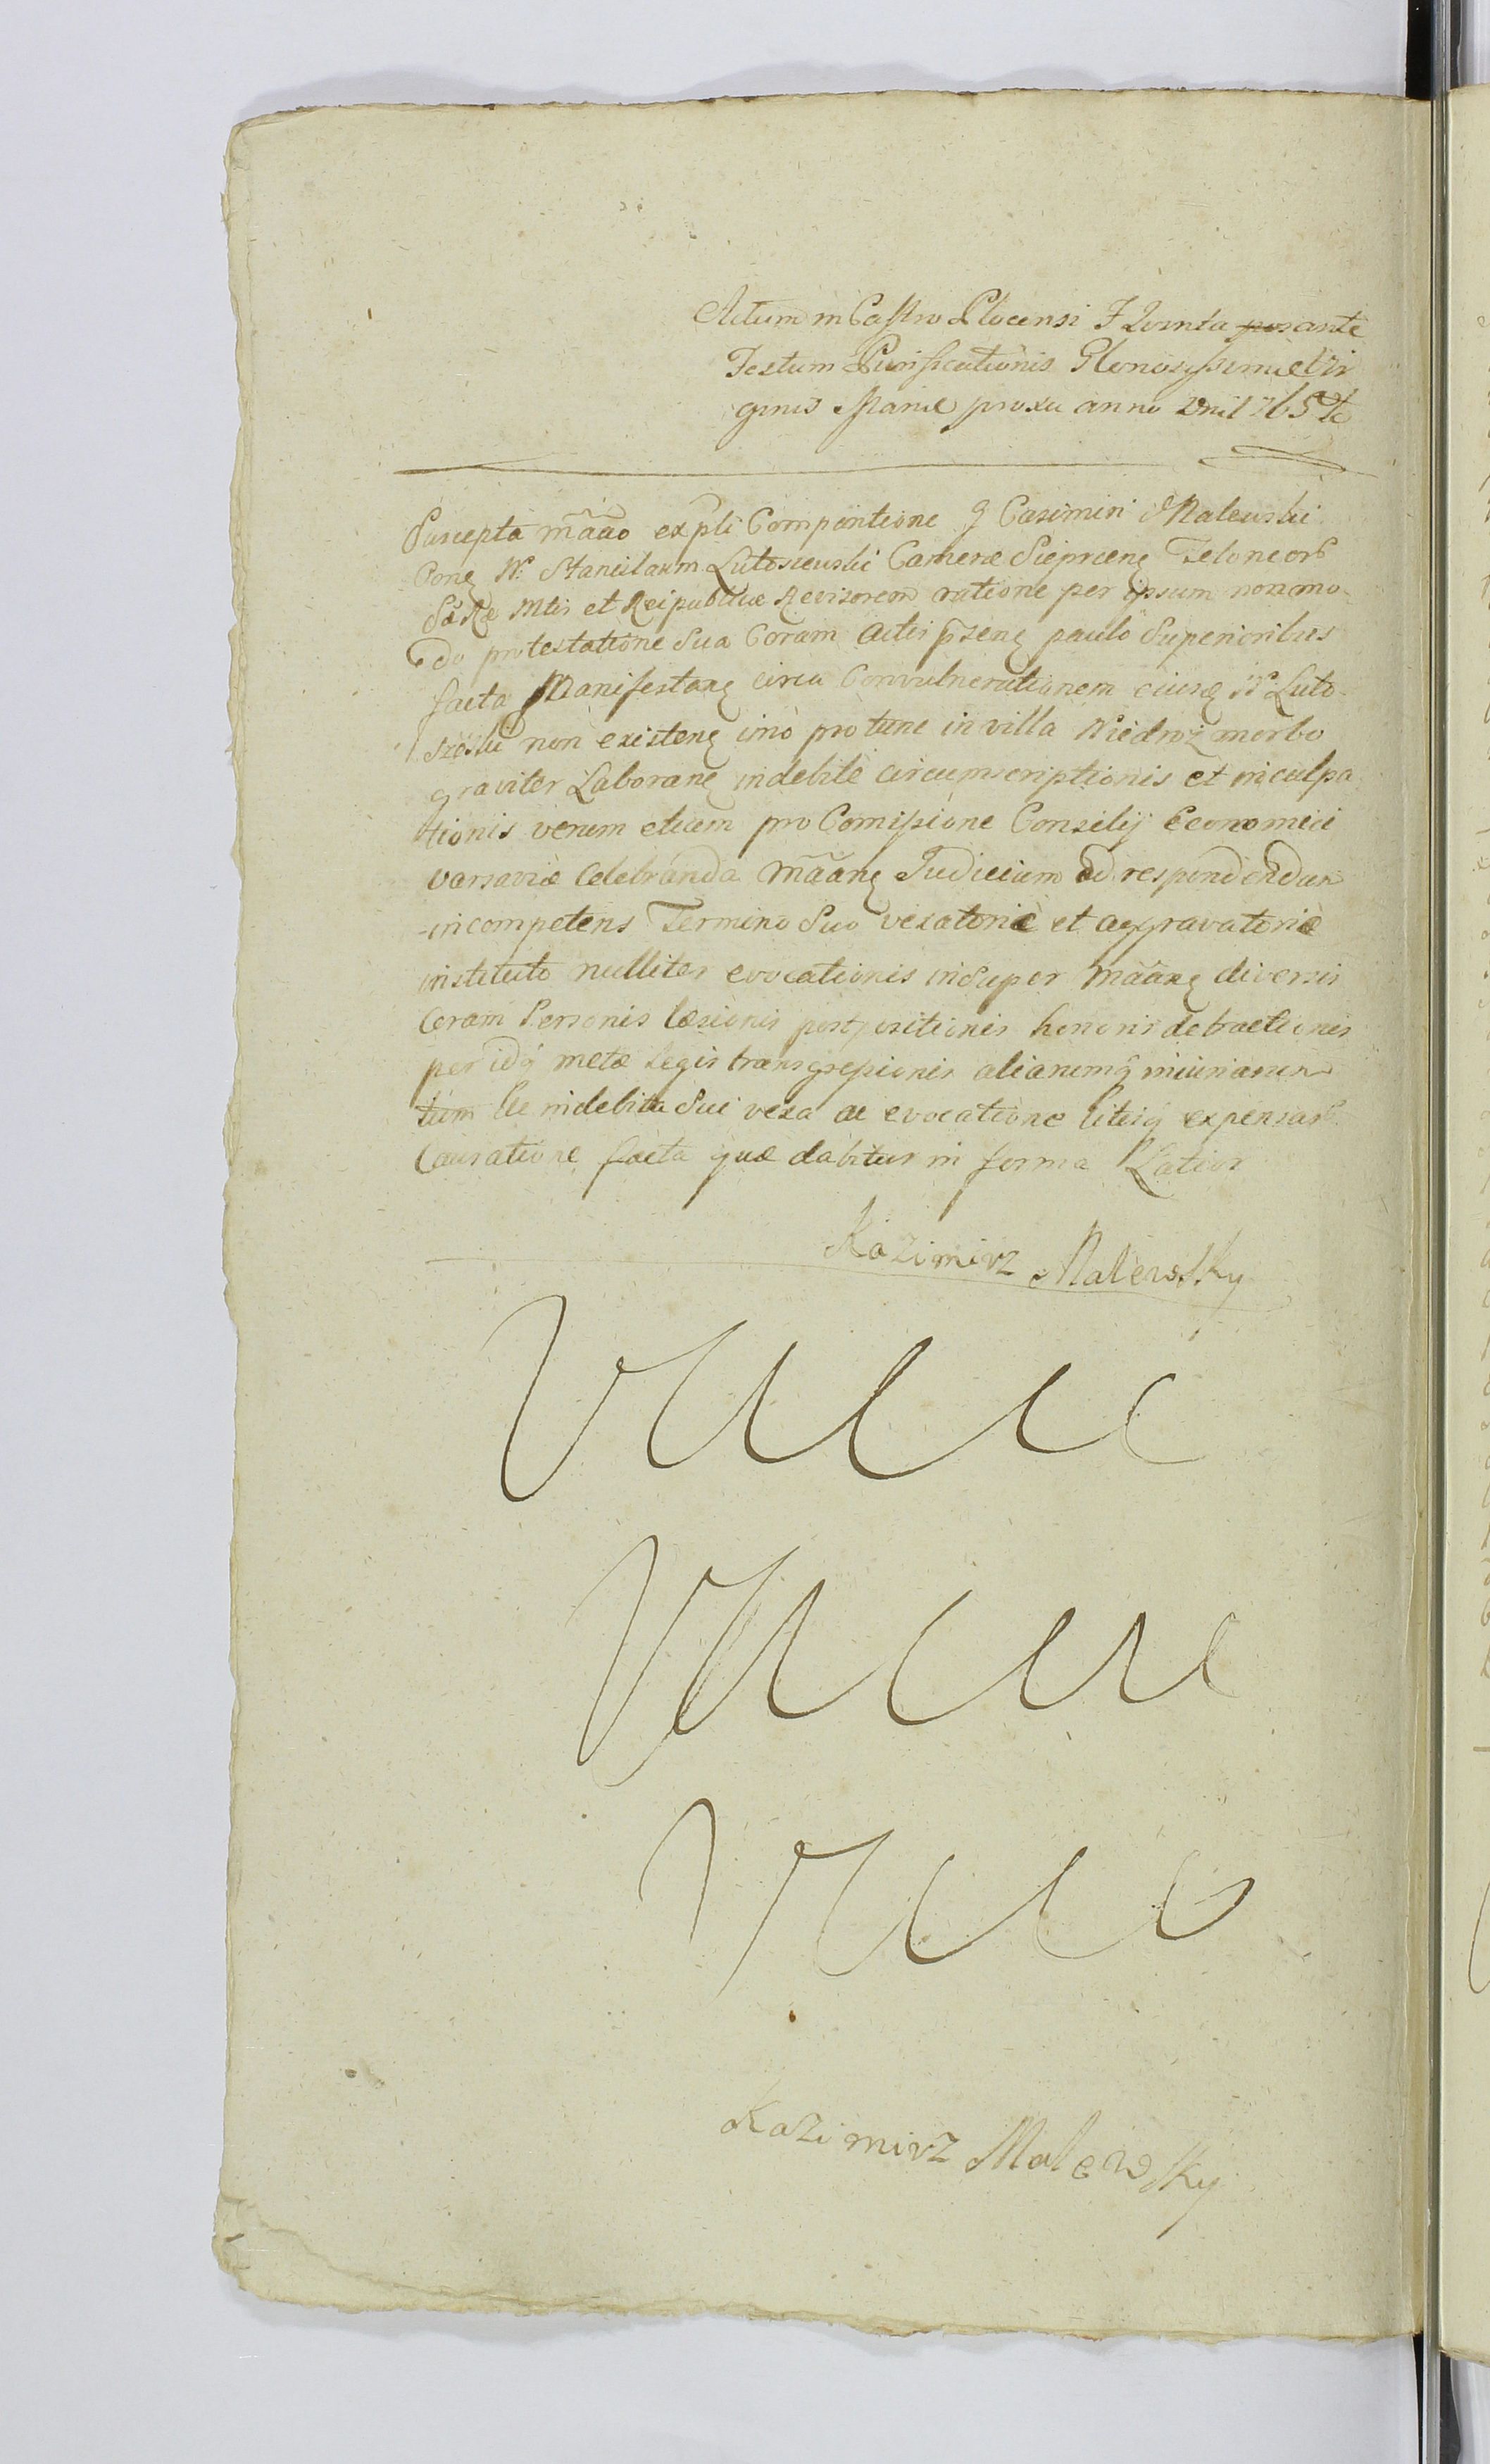 Actum in Castro Plocensi F Quinta pos ante
Festum Purificationis Gloriosissimae Vir
ginis Mariae proxa anno Dni 1765to
Suscepta mãão ex pli Comparitione G Casimiri Malewski
Conq N: Stanislaum Lutosiewski Camerae Sieprcenq Teloneorb
SæRæ Mtis et Reipublicae Revisorem ratione per ipsum non mo
do protestatione sua Coram Actis p̃senq paulo Superioribus
facta Manifestanq circa Convulnerationem eiusq N Luto
slõski non existenq imò pro tunc in villa Niedroż morbo
graviter Laboranq indebitè circumscriptionis et inculpa
tionis verum etiam pro Comissione Consilij Economici
varsaviæ Celebranda mããnq Judicium ad respondendum
incompetens Termino Suo vexatoriè et aggravatoriè
instituto nulliter evocationis insuper mããnq diversis
Coram Personis læsionis postpositionis honoris detractionis
per idq metæ Legis transgressionis aliarumq iniuriarum
tum de indebita Sui vexa ac evocatione litisq expensarb
Causatione facta quæ dabitur in forma Latior
Kazimirz Malewsky
Kazimirz Malewsky